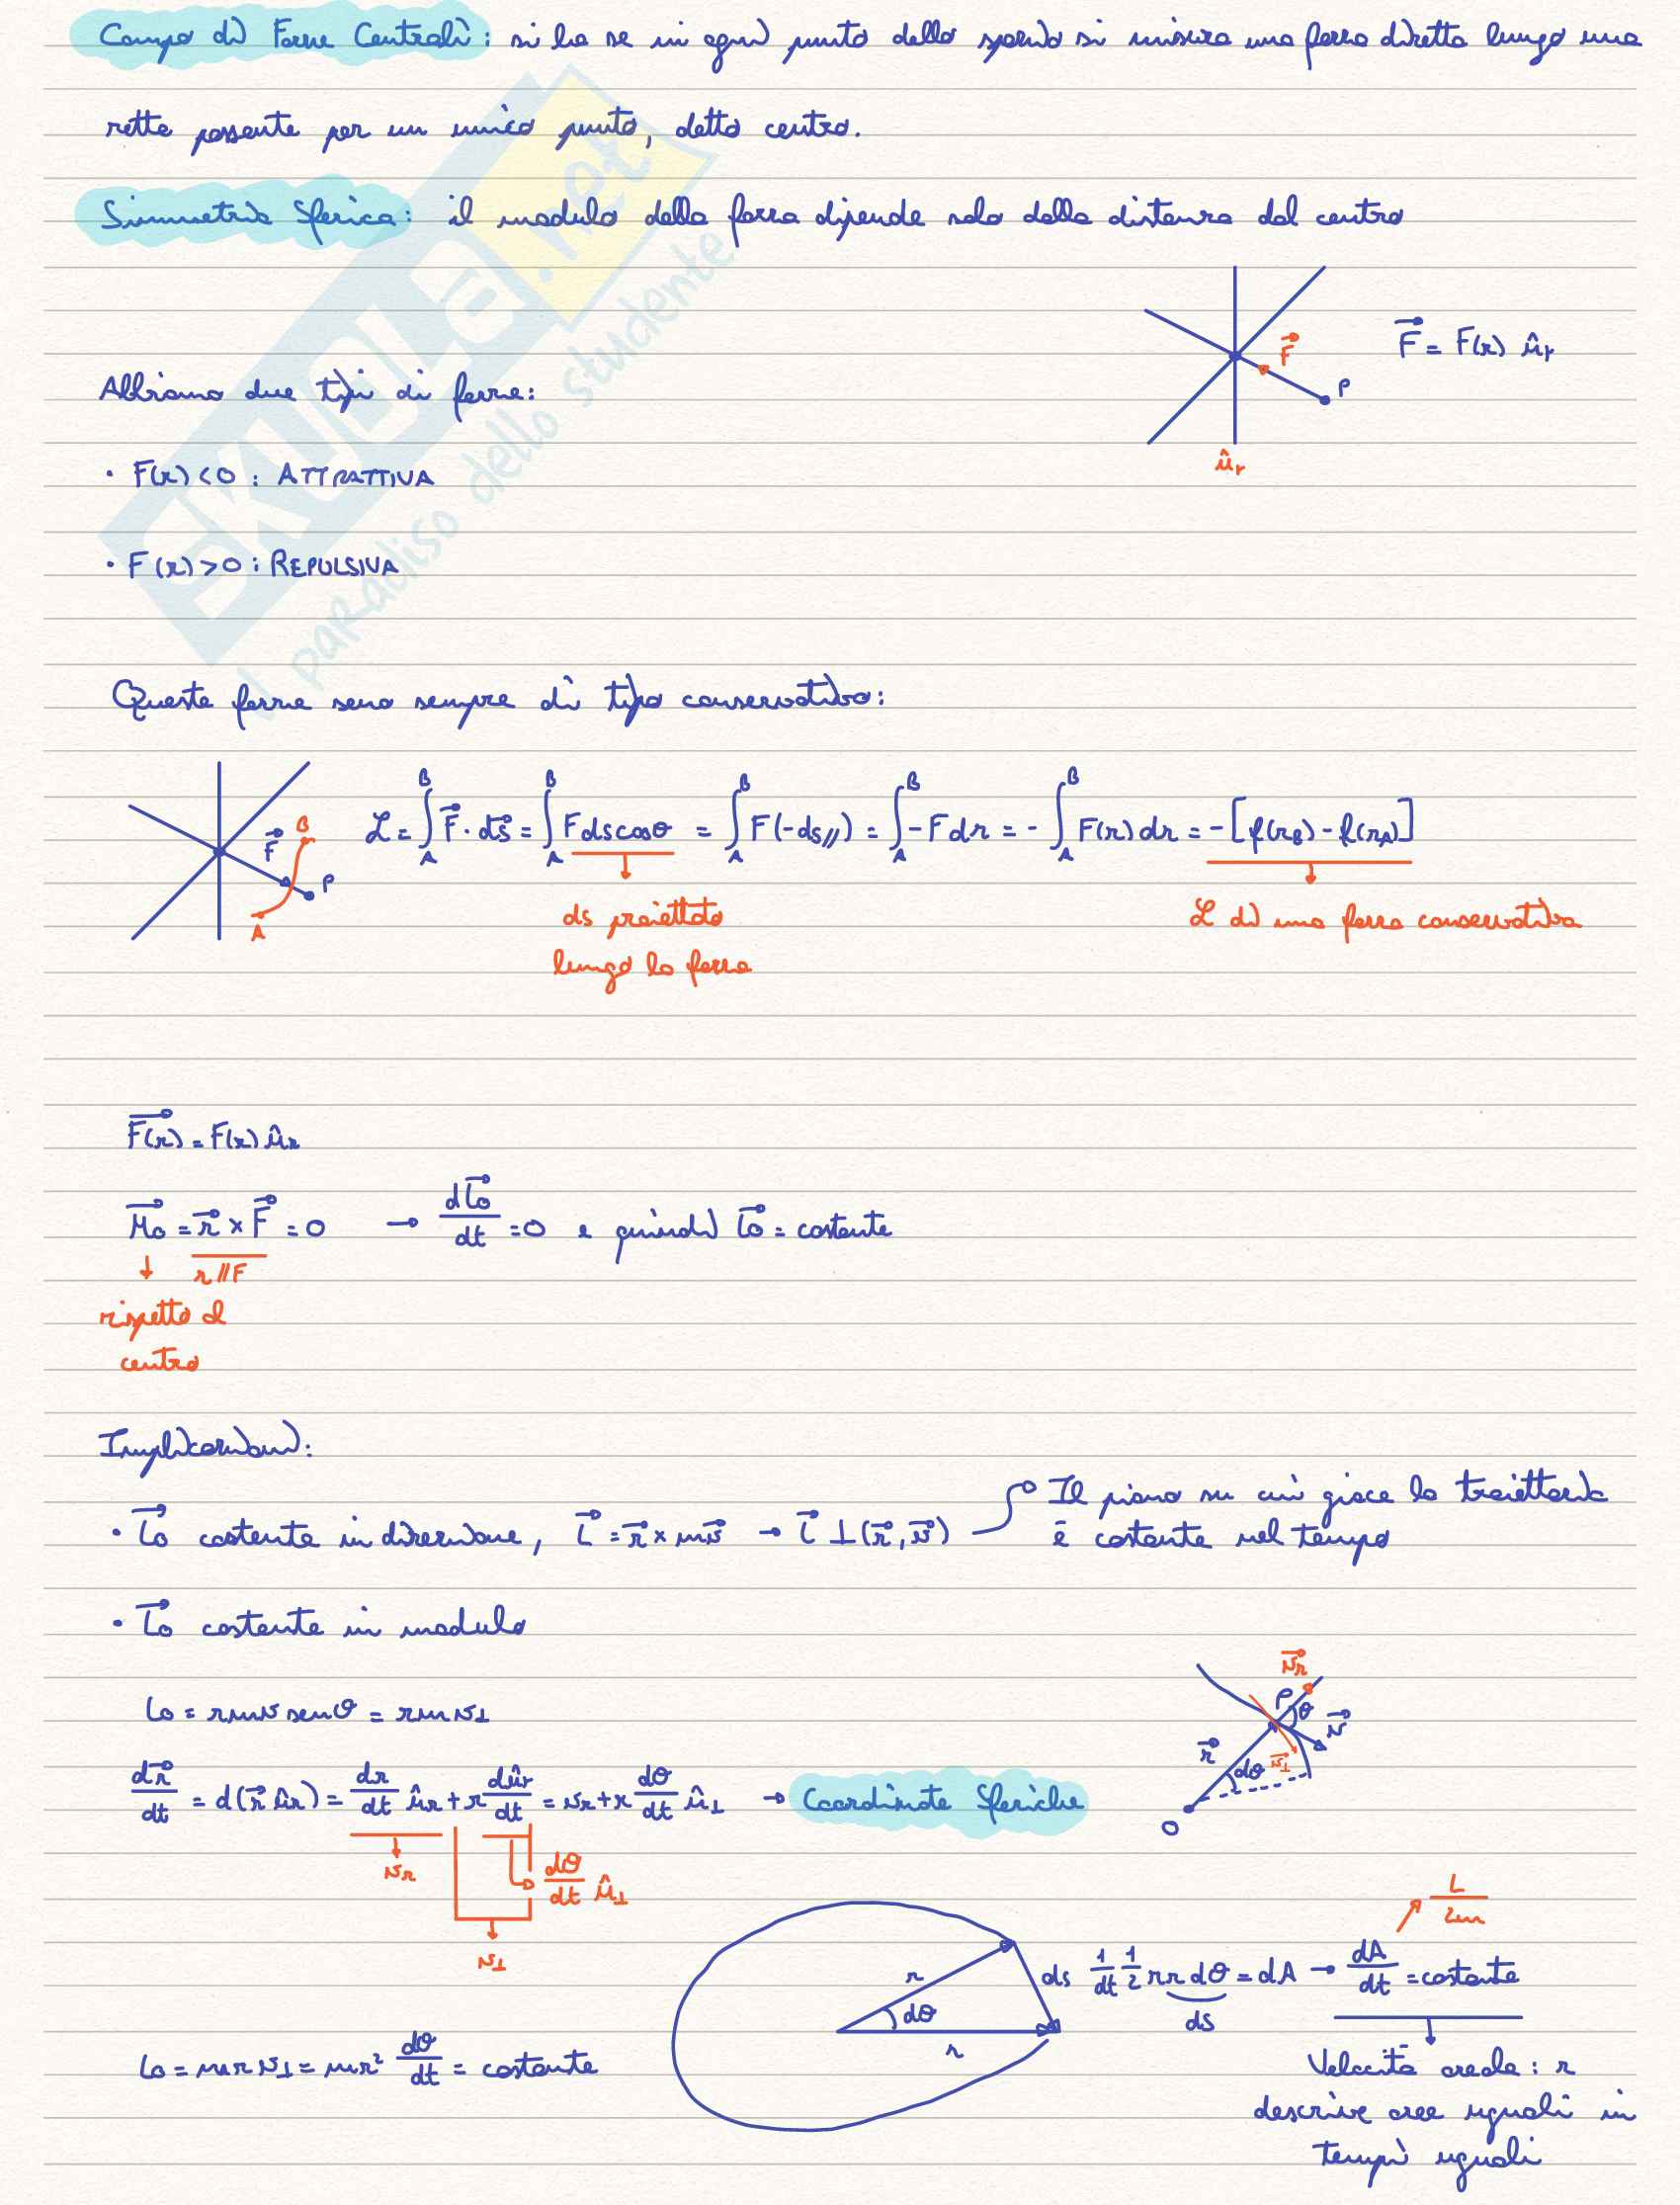 Campo di Forze Centrali: si ha se in ogni punto dello spazio si misura una forza diretta lungo una
retta passante per un unico punto, detto centro.
Simmetria Sferica: il modulo della forza dipende solo dalla distanza dal centro
F⃗ P F⃗ = F(r) û_r
û_r
Abbiamo due tipi di forze:
• F(r) < 0 : ATTRATTIVA
• F(r) > 0 : REPULSIVA
SKUOLA.net
il paradiso dello studente
Queste forze sono sempre di tipo conservativo:
F⃗ B P A
ℒ = ∫_A^B F⃗ · ds⃗ = ∫_A^B F ds cosθ = ∫_A^B F(-ds//) = ∫_A^B -F dr = -∫_A^B F(r) dr = -[f(r_B) - f(r_A)]
ds proiettato
lungo la forza
ℒ di una forza conservativa
F⃗(r) = F(r) û_r
M⃗o = r⃗ × F⃗ = 0 → dL⃗o/dt = 0 e quindi L⃗o = costante
r // F
rispetto al
centro
Implicazioni:
• L⃗o costante in direzione, L⃗ = r⃗ × mv⃗ → L⃗ ⊥ (r⃗, v⃗)
Il piano su cui giace la traiettoria
è costante nel tempo
• L⃗o costante in modulo
Lo = rmv senθ = rmv⊥
v⃗_r P θ v⃗ r⃗ v⃗⊥ dθ O
dr⃗/dt = d(r⃗ û_r) = dr/dt û_r + r dû_r/dt = v_r + r dθ/dt û⊥ → Coordinate Sferiche
v_r
dθ/dt û⊥
v⊥
r dθ r ds
1/dt 1/2 r r dθ = dA → dA/dt = costante
ds
L/2m
Lo = mr v⊥ = mr² dθ/dt = costante
Velocità areale: r
descrive aree uguali in
tempi uguali